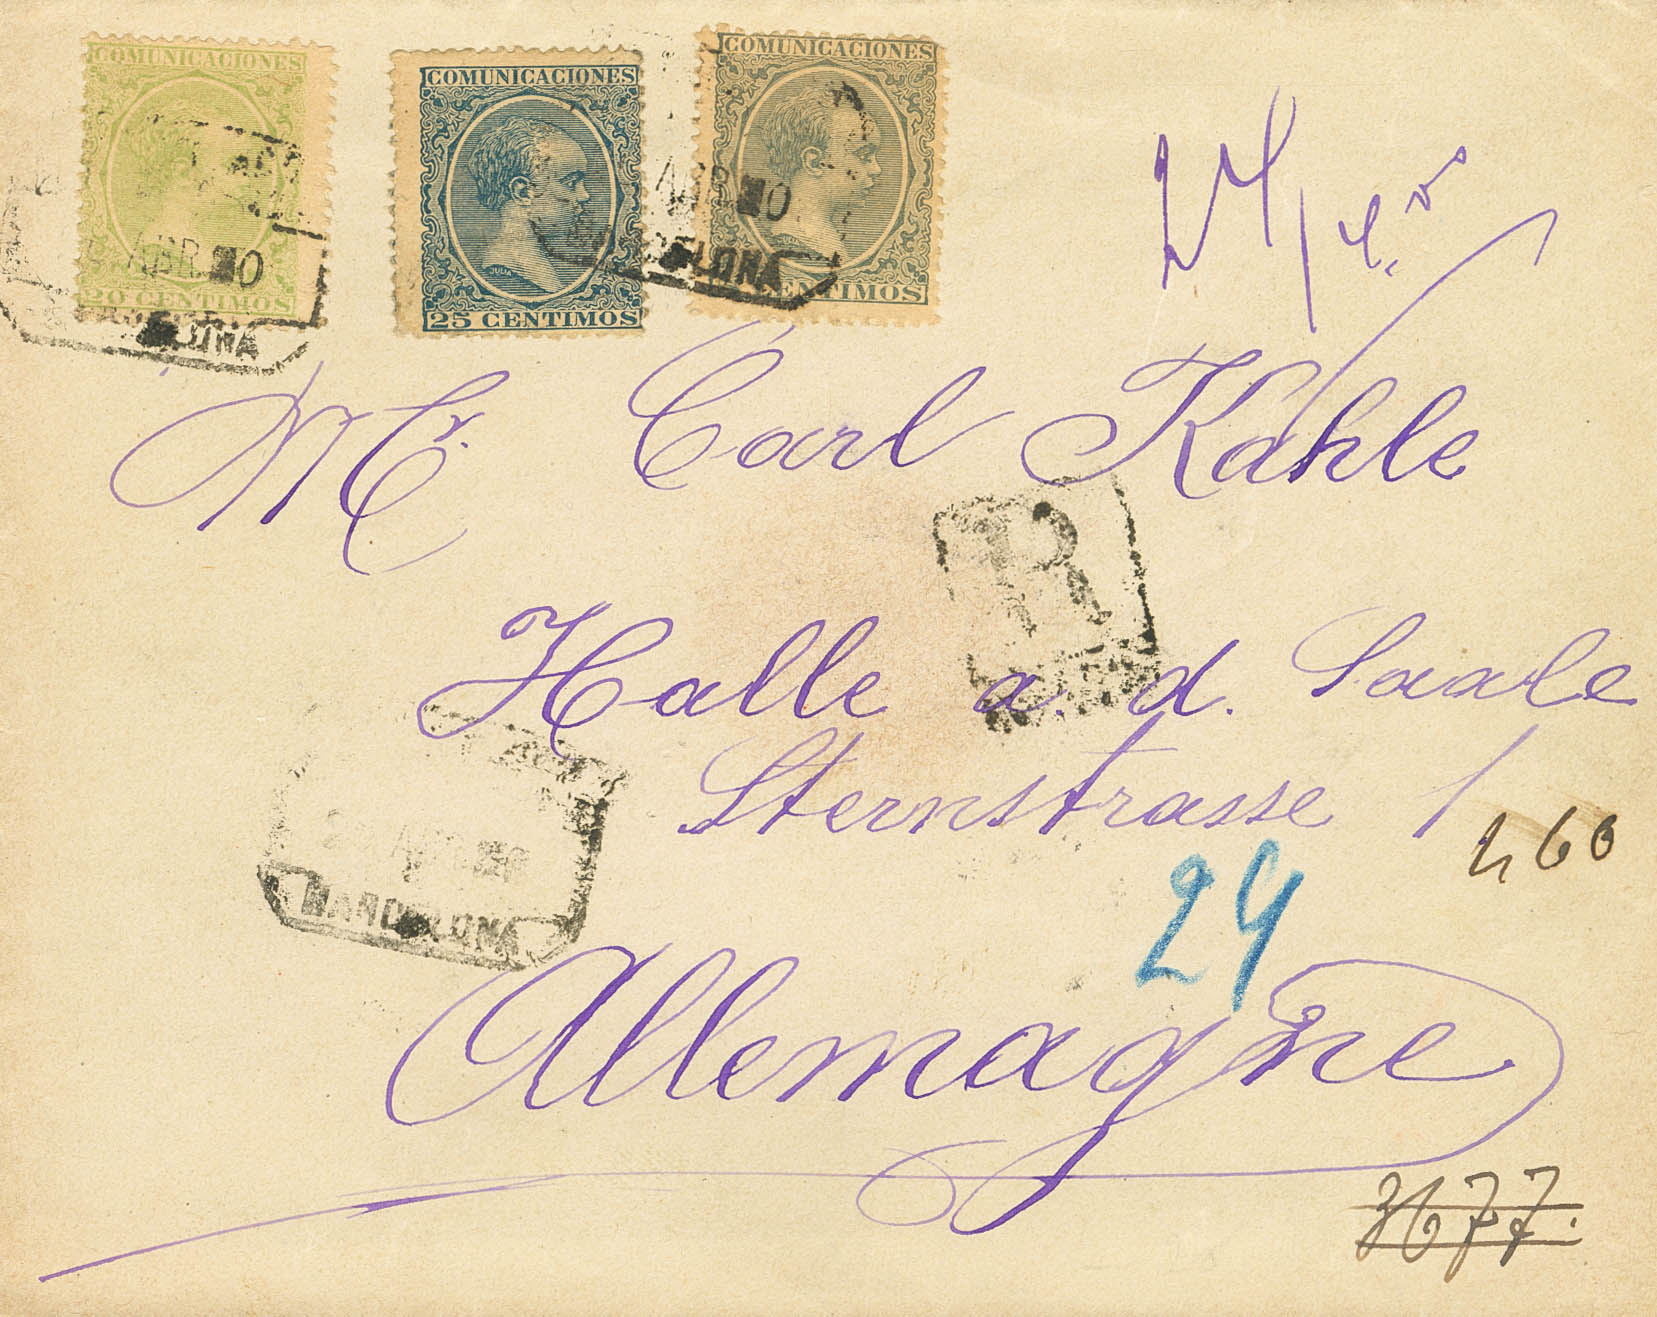 COMUNICACIONES
20 CENTIMOS
COMUNICACIONES
JULIA
25 CENTIMOS
COMUNICACIONES
CENTIMOS
ABR
ABR
Mr. Carl Kahle
R
Halle a. d. Saale
Sternstrasse 1
460
24
BARCELONA
Allemagne
3677.